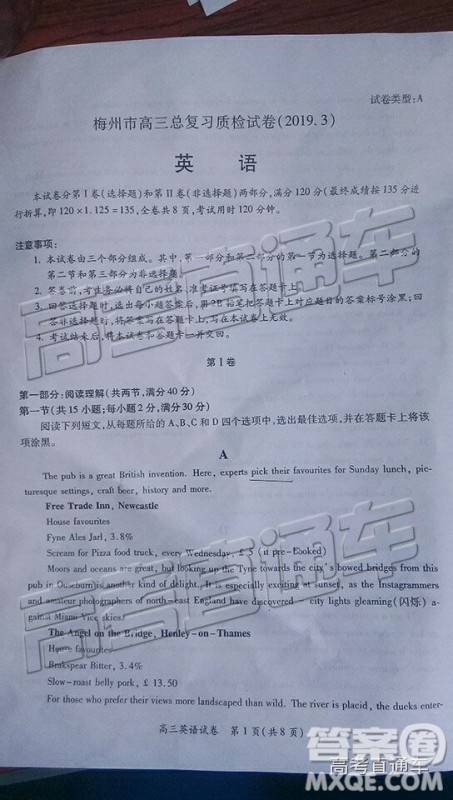 试卷类型:A
梅州市高三总复习质检试卷(2019.3)
英 语
本试卷分第Ⅰ卷(选择题)和第Ⅱ卷(非选择题)两部分,满分120分(最终成绩按135分进
行折算,即120×1.125=135,全卷共8页,考试用时120分钟。
注意事项:
1. 本试卷由三个部分组成。其中,第一部分和第二部分的第一节为选择题。第二部分的
第二节和第三部分为非选择题。
2. 答卷前,考生务必将自己的姓名、准考证号填写在答题卡上。
3. 回答选择题时,选出每小题答案后,用2B铅笔把答题卡上对应题目的答案标号涂黑;回
答非选择题时,将答案写在答题卡上,写在本试卷上无效。
4. 考试结束后,将本试卷和答题卡一并交回。
第Ⅰ卷
第一部分:阅读理解(共两节,满分40分)
第一节(共15小题;每小题2分,满分30分)
阅读下列短文,从每题所给的A、B、C和D四个选项中,选出最佳选项,并在答题卡上将该
项涂黑。
A
The pub is a great British invention. Here, experts pick their favourites for Sunday lunch, pic-
turesque settings, craft beer, history and more.
Free Trade Inn, Newcastle
House favourites
Fyne Ales Jarl, 3.8%
Scream for Pizza food truck, every Wednesday, £ 5 (if pre-Looked)
Moors and oceans are great, but looking up the Tyne towards the city's bowed bridges from this
pub in Ouseburn is another kind of delight. It is especially exciting at sunset, as the Instagrammers
and amateur photographers of north-east England have discovered — city lights gleaming (闪烁) a-
gainst Miami Vice skies.
The Angel on the Bridge, Henley-on-Thames
House favourites
Brakspear Bitter, 3.4%
Slow-roast belly pork, £ 13.50
For those who prefer their views more landscaped than wild. The river is placid, the ducks enter-
高三英语试卷 第1页(共8页)
高考直通车
高考直通车
答案圈
高考直通车
MXQE.COM